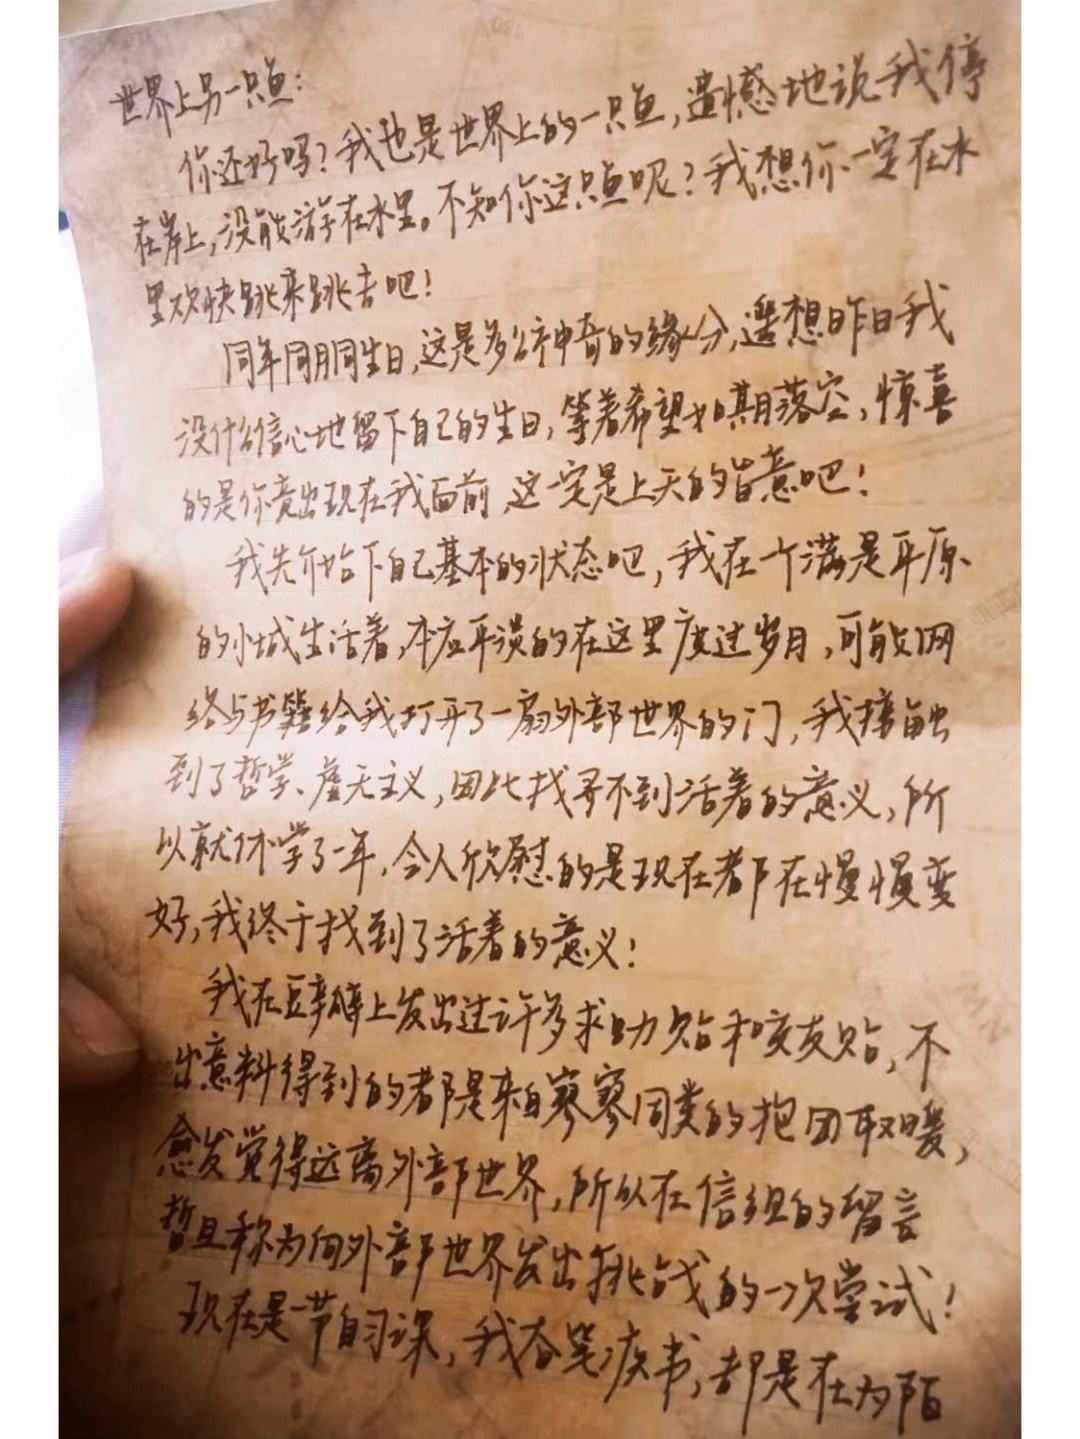 世界上另一只鱼：
你还好吗？我也是世界上的一只鱼，遗憾地说我停
在岸上，没能游在水里。不知你这只鱼呢？我想你一定在水
里欢快跳来跳去吧！
同年同月同生日，这是多么神奇的缘分，遥想昨日我
没什么信心地留下自己的生日，等着希望如期落空，惊喜
的是你竟出现在我面前，这一定是上天的旨意吧！
我先介绍下自己基本的状态吧，我在一个满是平原
的小城生活着，本应平淡的在这里度过岁月，可能网
络与书籍给我打开了一扇外部世界的门，我接触
到了哲学、虚无主义，因此找寻不到活着的意义，所
以就休学了一年，令人欣慰的是现在都在慢慢变
好，我终于找到了活着的意义！
我在豆瓣上发出过许多求助贴和交友贴，不
出意料得到的都是来自寥寥同类的抱团取暖，
愈发觉得远离外部世界，所以在信组的留言
暂且称为向外部世界发出挑战的一次尝试！
现在是一节自习课，我奋笔疾书，都是在为陌